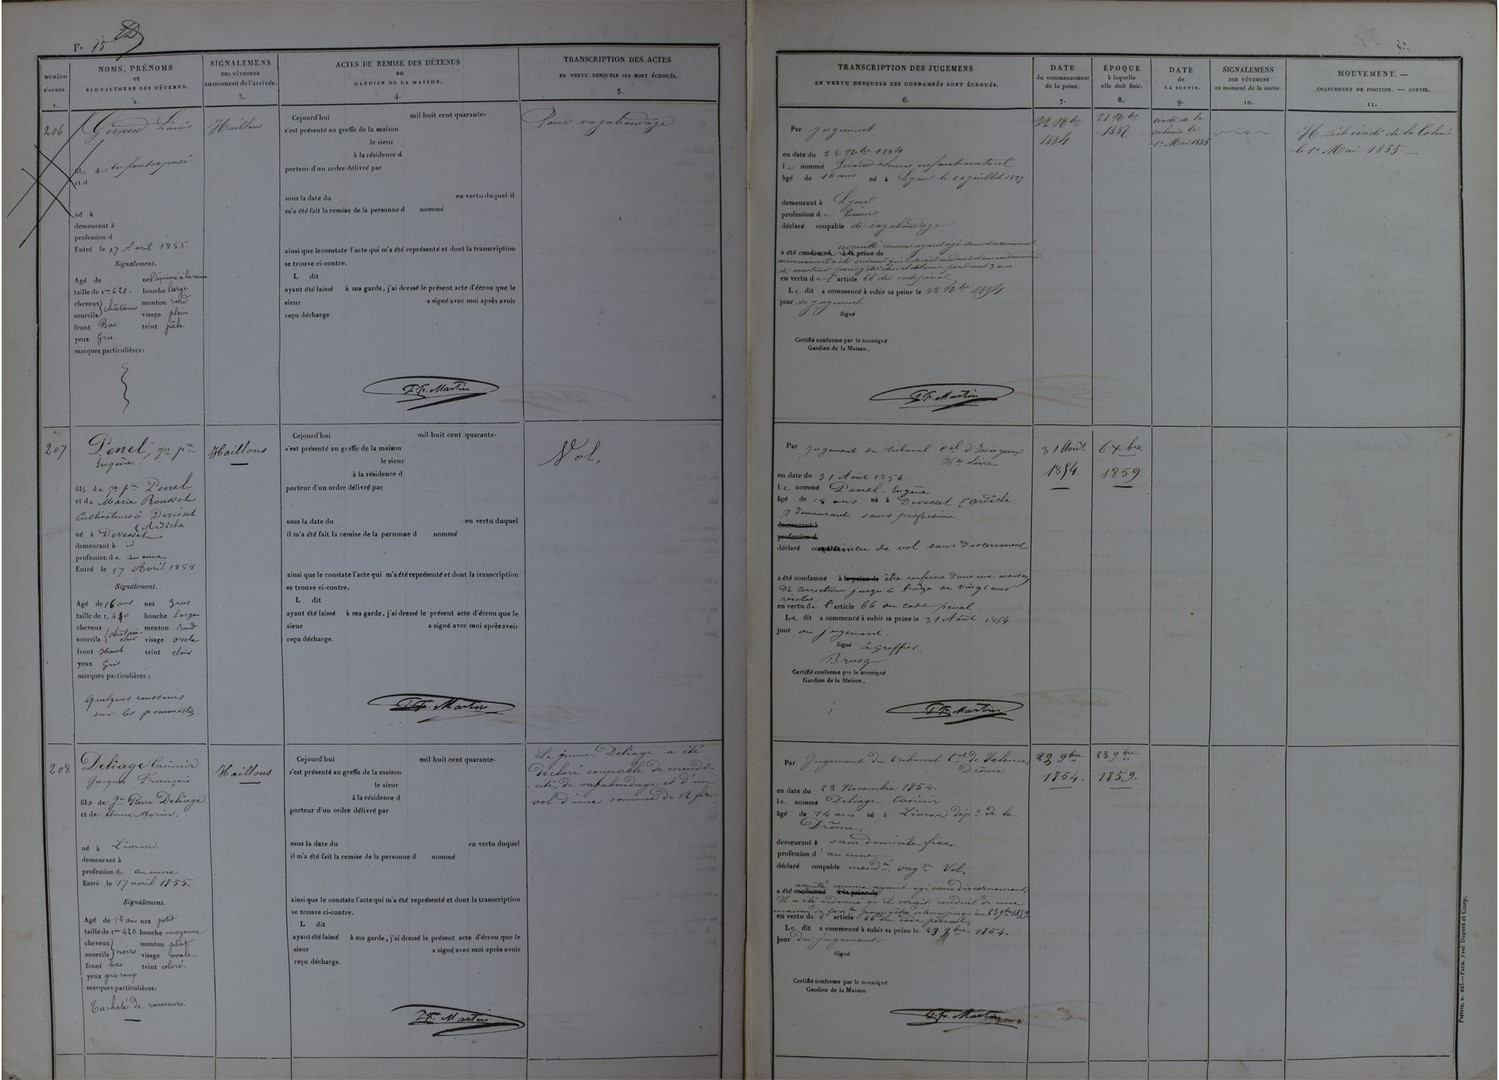 Fo 15
NUMÉRO D'ORDRE. 1.
NOMS, PRÉNOMS
et
SIGNALEMENS DES DÉTENUS.
2.
SIGNALEMENS
DES VÊTEMENS
au moment de l'arrivée.
3.
ACTES DE REMISE DES DÉTENUS
au
GARDIEN DE LA MAISON.
4.
TRANSCRIPTION DES ACTES
EN VERTU DESQUELS ILS SONT ÉCROUÉS.
5.
TRANSCRIPTION DES JUGEMENS
EN VERTU DESQUELS LES CONDAMNÉS SONT ÉCROUÉS.
6.
DATE
du commencement
de la peine.
7.
ÉPOQUE
à laquelle
elle doit finir.
8.
DATE
de
LA SORTIE.
9.
SIGNALEMENS
DES VÊTEMENS
au moment de la sortie.
10.
MOUVEMENT. —
CHANGEMENT DE POSITION. — SORTIE.
11.
206
Louis
et d
né à
demeurant à
profession d
Entré le 17 Avril 1855
Signalement.
Agé de nez
taille de 1m 620. bouche large
cheveux châtains menton rond
sourcils visage plein
front Bas teint pâle
yeux Gris
marques particulières:
Haillons
Cejourd'hui mil huit cent quarante-
s'est présenté au greffe de la maison
le sieur
à la résidence d
porteur d'un ordre délivré par
sous la date du en vertu duquel il
m'a été fait la remise de la personne d nommé
ainsi que le constate l'acte qui m'a été représenté et dont la transcription
se trouve ci-contre.
L dit
ayant été laissé à ma garde, j'ai dressé le présent acte d'écrou que le
sieur a signé avec moi après avoir
reçu décharge
Martin
Pour vagabondage
Par jugement
en date du 22 1854
le nommé Louis enfant naturel
âgé de 16 ans né à Lyon le juillet
demeurant à Lyon
profession d
déclaré coupable de vagabondage
a été condamné à la peine de acquitté comme ayant agi sans discernement
en vertu de l'article 66 du code pénal
Le dit a commencé à subir sa peine le 22 1854
jour du jugement
Signé
Certifié conforme par le soussigné
Gardien de la Maison,
Martin
22
1854
21
évadé de la
colonie le
1er Mai 1855
Il s'est évadé de la Colonie
le 1er Mai 1855
207
Penel,
Eugène
fils de Penel
et de Marie Rousset
Cultivateurs à Devesset
(Ardèche
né à Devesset
demeurant à id
profession de aucune
Entré le 17 Avril 1855
Signalement.
Agé de 16 ans nez Gros
taille de 1, 410 bouche Large
cheveux menton Rond
sourcils visage ovale
front Haut teint clair
yeux Gris
marques particulières:
quelques rousseurs
sur les pommettes.
Haillons
Cejourd'hui mil huit cent quarante-
s'est présenté au greffe de la maison
le sieur
à la résidence d
porteur d'un ordre délivré par
sous la date du en vertu duquel
il m'a été fait la remise de la personne d nommé
ainsi que le constate l'acte qui m'a été représenté et dont la transcription
se trouve ci-contre.
L dit
ayant été laissé à ma garde, j'ai dressé le présent acte d'écrou que le
sieur a signé avec moi après avoir
reçu décharge.
Martin
Vol.
Par jugement du tribunal d'Issingeaux
Hte Loire
en date du 31 Août 1854.
le nommé Penel Eugène
âgé de ans né à Devesset (Ardèche
y demeurant sans profession
demeurant à
profession d
déclaré de vol sans discernement
a été condamné à la peine de être renfermé dans une maison
de correction jusqu'à l'âge de vingt ans
révolus
en vertu de l'article 66 du code pénal.
Le dit a commencé à subir sa peine le 31 Août 1854
jour du jugement.
Signé le Greffier.
Certifié conforme par le soussigné
Gardien de la Maison,
Martin
31 Août
1854
6 Xbre
1859
208
Deliage Casimir
Jacques François
fils de Jn Pierre Deliage
et de Anne Morin.
né à Livron
demeurant à
profession de aucune
Entré le 17 avril 1855.
Signalement.
Agé de ans nez petit
taille de 1m 420 bouche moyenne
cheveux noirs menton plat
sourcils visage ovale
front bas teint coloré.
yeux gris roux
marques particulières:
Tacheté de rousseurs.
Haillons
Cejourd'hui mil huit cent quarante-
s'est présenté au greffe de la maison
le sieur
à la résidence d
porteur d'un ordre délivré par
sous la date du en vertu duquel
il m'a été fait la remise de la personne d nommé
ainsi que le constate l'acte qui m'a été représenté et dont la transcription
se trouve ci-contre.
L dit
ayant été laissé à ma garde, j'ai dressé le présent acte d'écrou que le
sieur a signé avec moi après avoir
reçu décharge.
Martin
Le jeune Deliage a été
déclaré coupable de mendi-
cité, de vagabondage et d'un
vol d'une somme de 12 frs.
Par Jugement du tribunal de Valence
Drôme
en date du 23 Novembre 1854.
le nommé Deliage Casimir
âgé de 14 ans né à Livron dépt de la
Drôme.
demeurant à sans domicile fixe.
profession d aucune
déclaré coupable mendté, vagge Vol.
a été condamné à la peine de acquitté comme ayant agi sans discernement,
Il a été ordonné qu'il serait conduit dans une
maison de pour y être détenu jusqu'au 23 9bre 1859
en vertu de l'article 66 du code pénal.
Le dit a commencé à subir sa peine le 23 9bre 1854.
jour du jugement.
Signé
Certifié conforme par le soussigné
Gardien de la Maison
Martin
23 9bre
1854.
23 9bre
1859.
Paris. Paul Dupont et Comp.